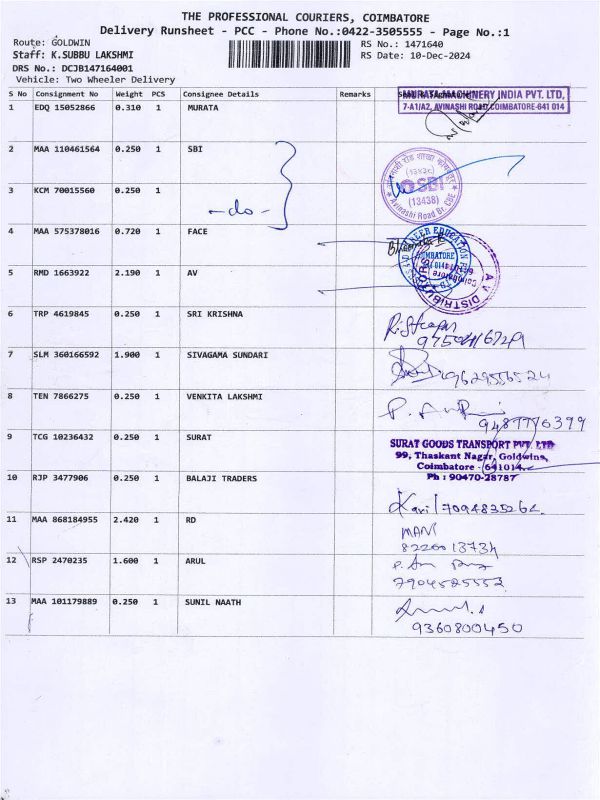 THE PROFESSIONAL COURIERS, COIMBATORE
Delivery Runsheet - PCC - Phone No.:0422-3505555 - Page No.:1
Route: GOLDWIN
RS No.: 1471640
Staff: K.SUBBU LAKSHMI
RS Date: 10-Dec-2024
DRS No.: DCJB147164001
Vehicle: Two Wheeler Delivery
S No Consignment No Weight PCS Consignee Details Remarks
MURATA MACHINERY INDIA PVT. LTD,
7-A1/A2, AVINASHI ROAD, COIMBATORE-641 014
1 EDQ 15052866 0.310 1 MURATA
2 MAA 110461564 0.250 1 SBI
SBI
(13438)
Avinashi Road Br. CBE
3 KCM 70015560 0.250 1
-do-
4 MAA 575378016 0.720 1 FACE
5 RMD 1663922 2.190 1 AV
A V DISTRIBUTORS
Coimbatore
6 TRP 4619845 0.250 1 SRI KRISHNA
7 SLM 360166592 1.900 1 SIVAGAMA SUNDARI
8 TEN 7866275 0.250 1 VENKITA LAKSHMI
9487770399
9 TCG 10236432 0.250 1 SURAT
SURAT GOODS TRANSPORT PVT. LTD
99, Thaskant Nagar, Goldwins,
Coimbatore - 641014.
Ph : 90470-28787
10 RJP 3477906 0.250 1 BALAJI TRADERS
11 MAA 868184955 2.420 1 RD
MANI
12 RSP 2470235 1.600 1 ARUL
7904525552
13 MAA 101179889 0.250 1 SUNIL NAATH
9360800450